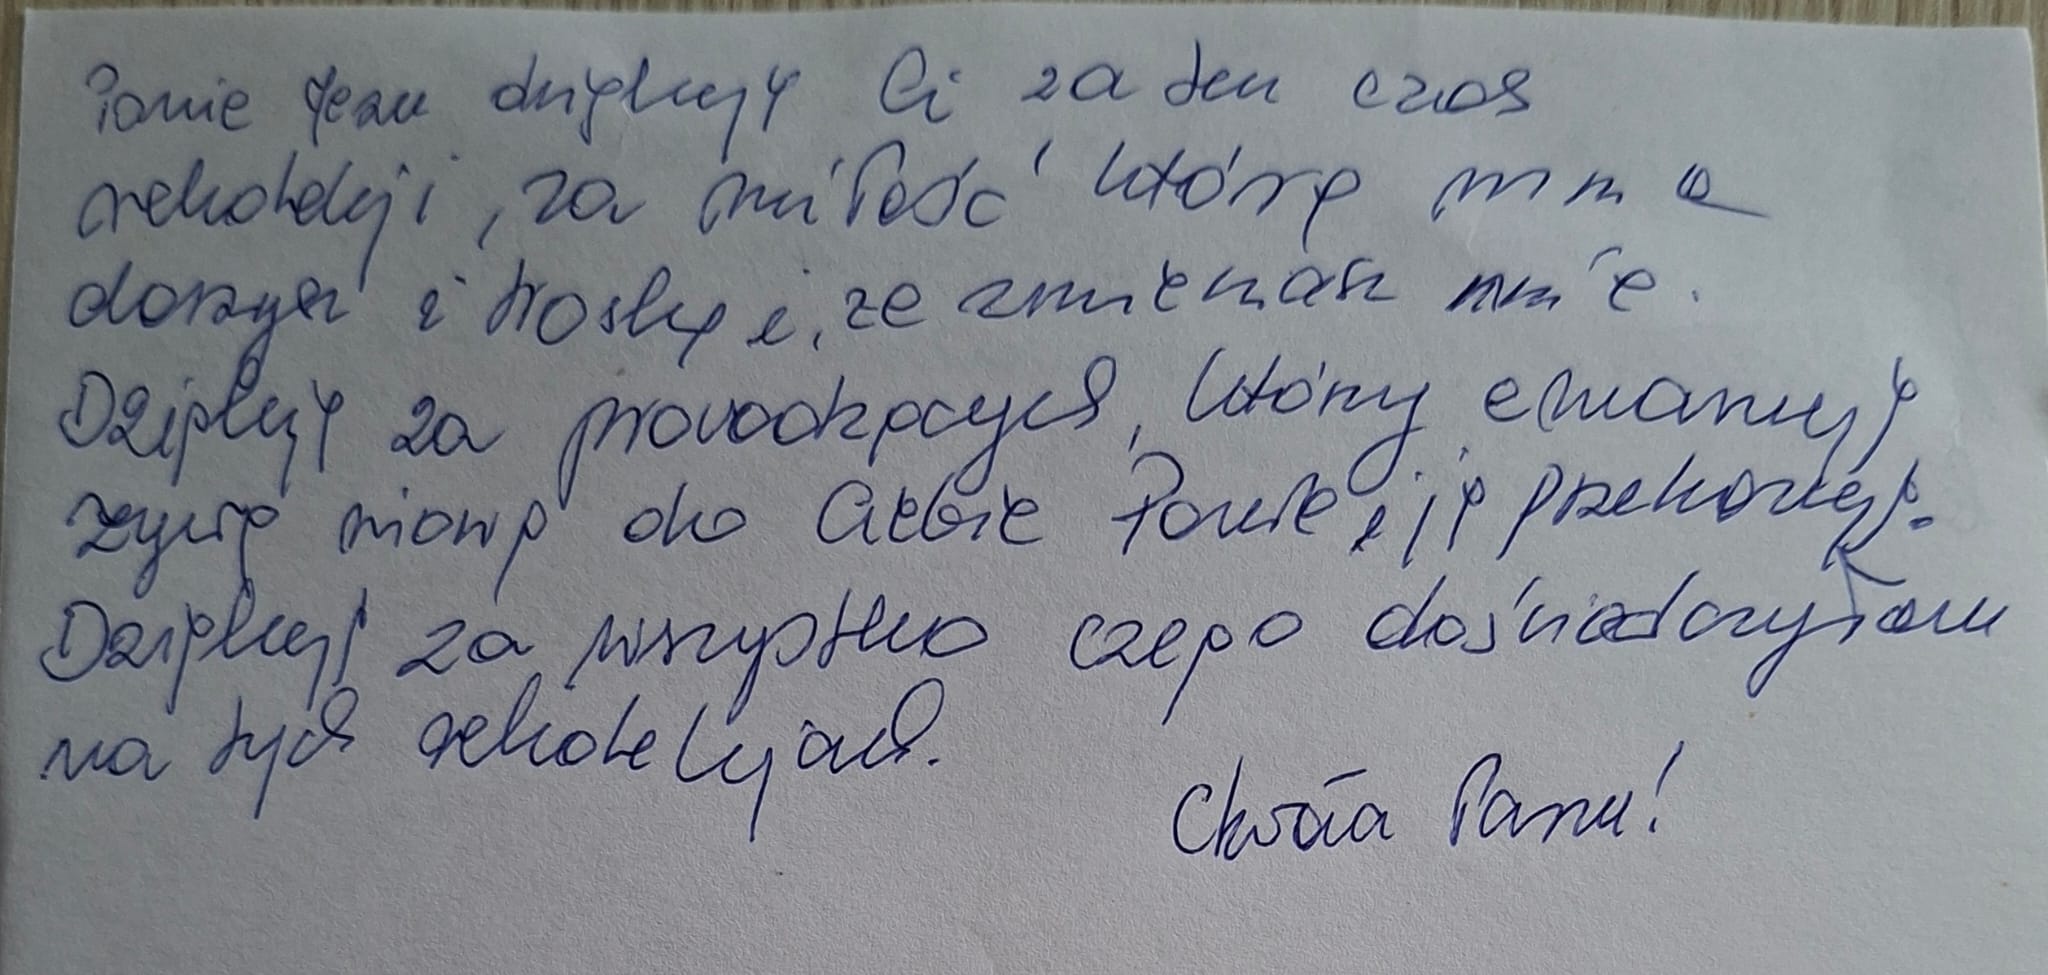 Panie Jezu dziękuję Ci za ten czas
rekolekcji, za miłość którą mnie
darzysz i troskę i, że zmieniasz mnie.
Dziękuję za prowadzących, którzy emanują
żywą wiarą do Ciebie Panie i ją przekazują.
Dziękuję za wszystko czego doświadczyłam
na tych rekolekcjach.
Chwała Panu!